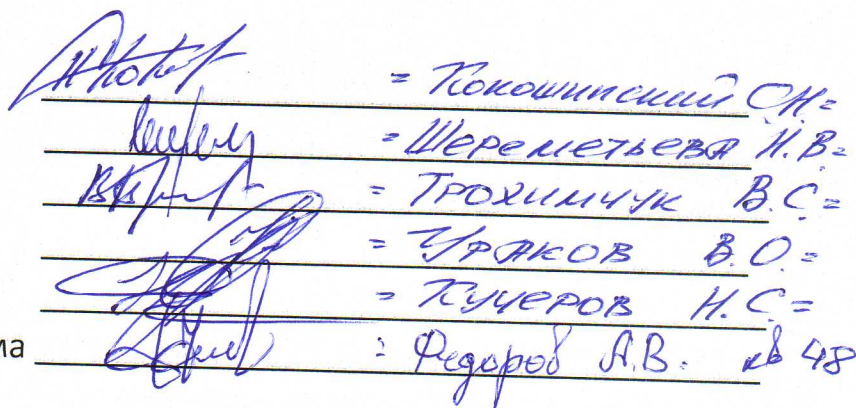 = Кокошинский О.Н. =
= Шереметьева Н.В. =
= Трохимчук В.С. =
= Ураков В.О. =
= Кучеров Н.С. =
ма = Федоров А.В. кв 48